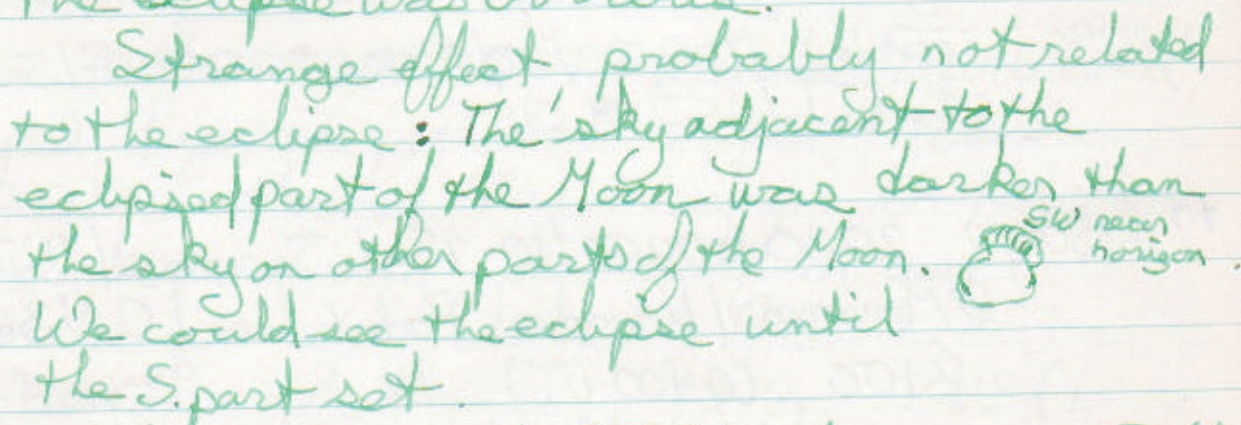 The eclipse was obvious.
Strange effect, probably not related
to the eclipse: The sky adjacent to the
eclipsed part of the Moon was darker than
the sky on other parts of the Moon.
SW near
horizon.
We could see the eclipse until
the S. part set.